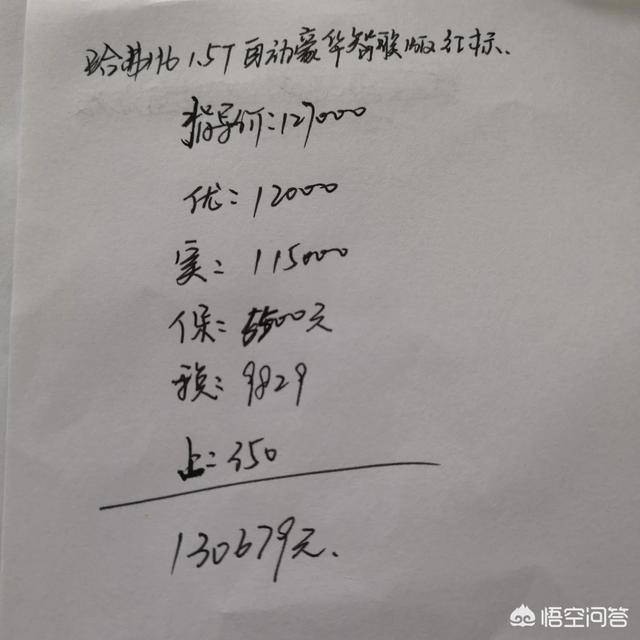 哈弗H6 1.5T自动豪华智联版红标.
指导价:127000
优:12000
实:115000
保:5500元
税:9829
上:350
130679元.
悟空问答